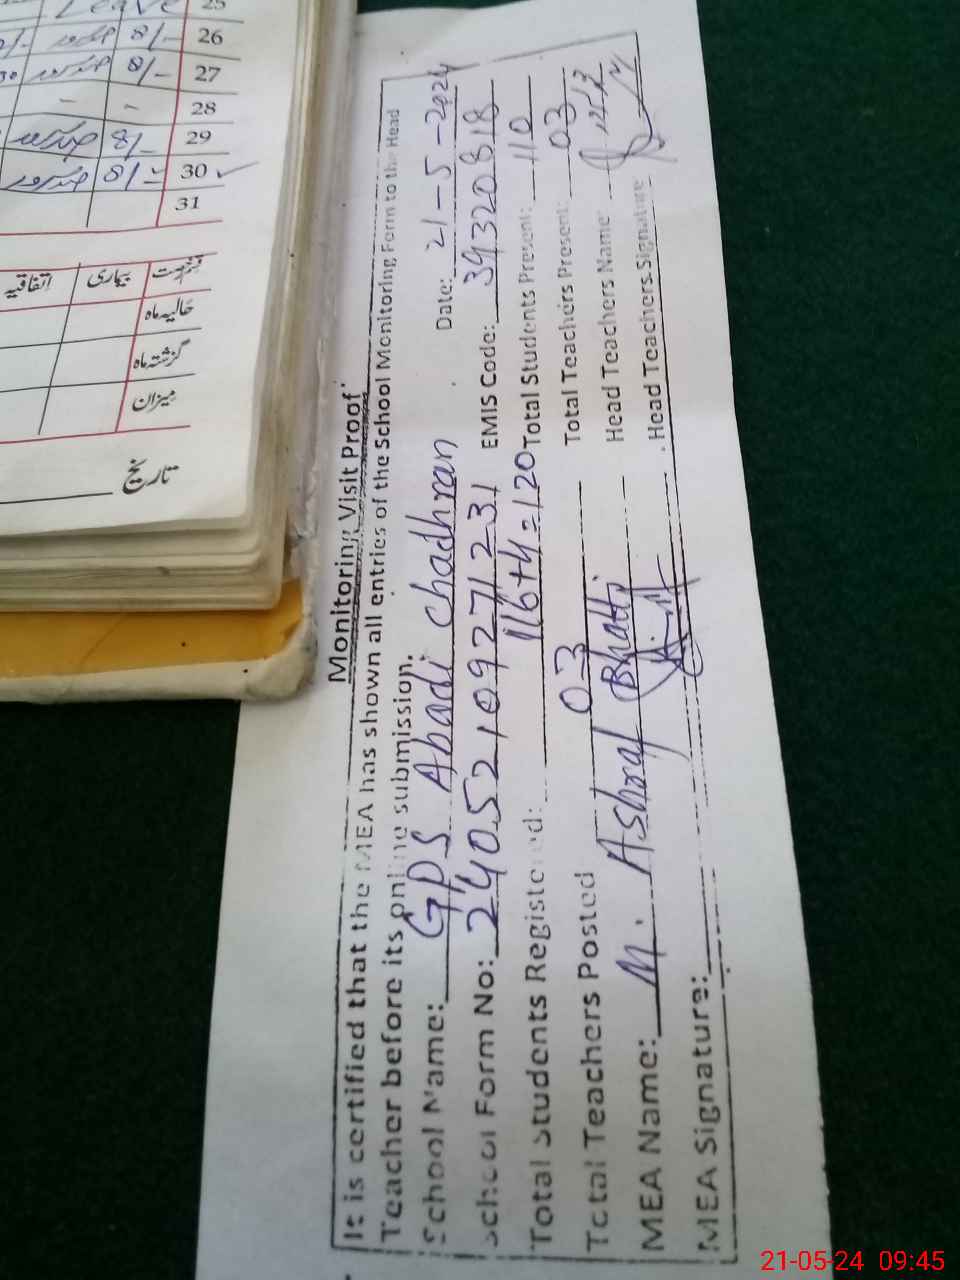 25
8/- 26
8/- 27
- - 28
8/- 29
8/- 30
31
اتفاقیہ بیماری
حالیہ ماہ
گزشتہ ماہ
میزان
تاریخ
Monitoring Visit Proof
It is certified that the MEA has shown all entries of the School Monitoring Form to the Head
Teacher before its online submission.
School Name: GPS Abadi Chadhran Date: 21-5-2024
School Form No: 24052109271231 EMIS Code: 39320818
Total Students Registered: 116+4=120 Total Students Present: 110
Total Teachers Posted 03 Total Teachers Present: 03
MEA Name: M. Ashraf Bhatti Head Teachers Name
MEA Signature: Head Teachers Signature
21-05-24 09:45